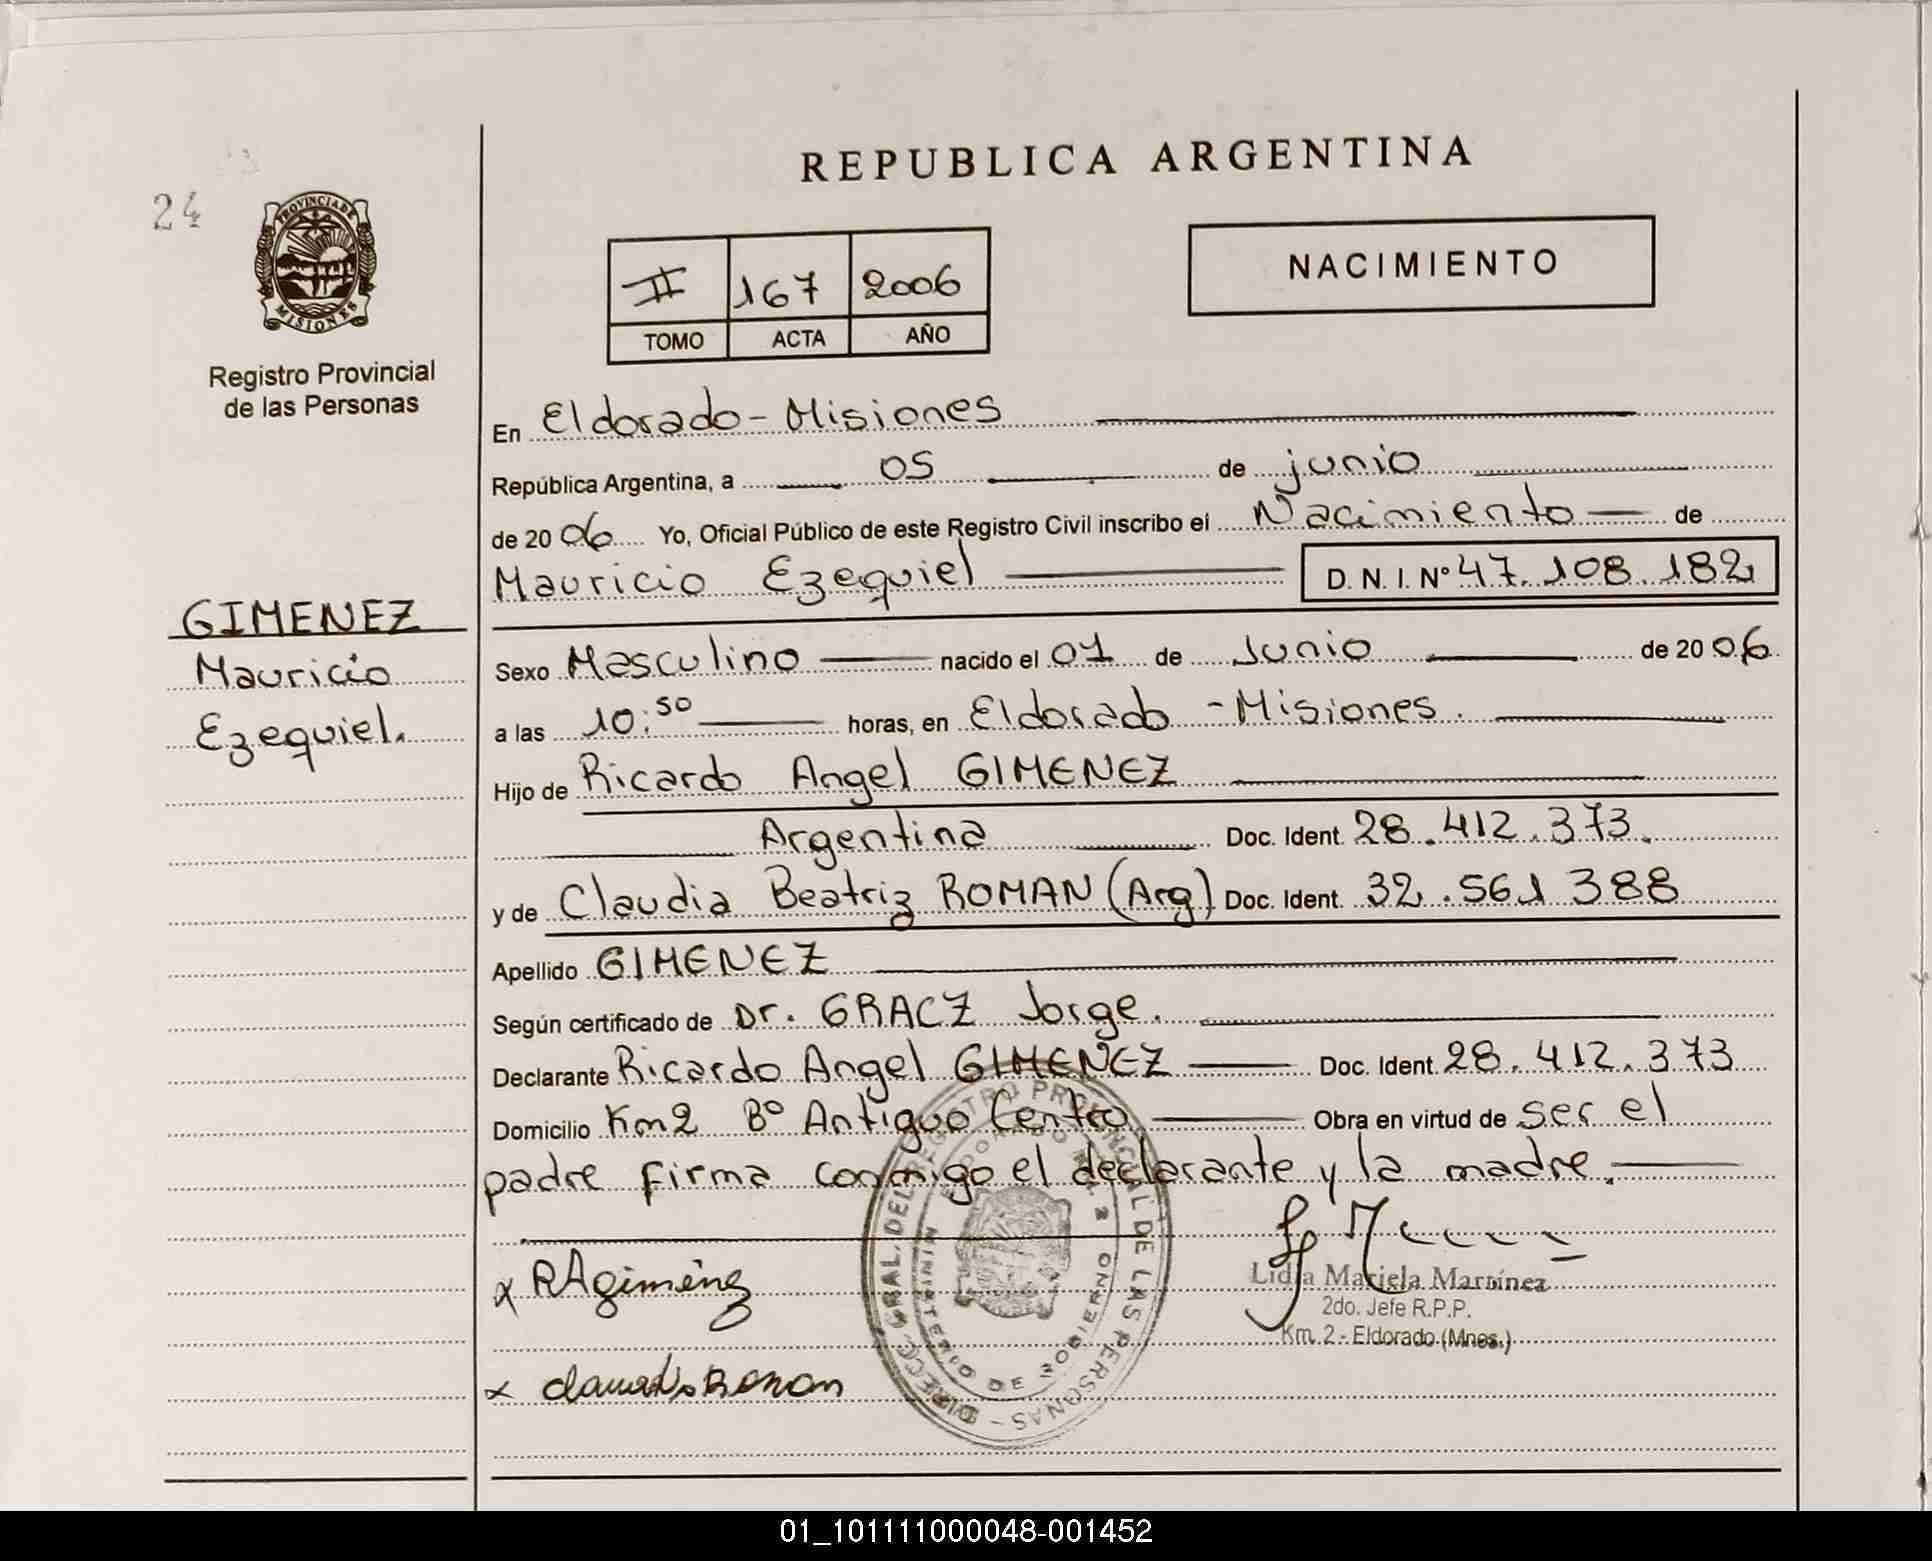 REPUBLICA ARGENTINA
24
PROVINCIA DE
MISIONES
Registro Provincial
de las Personas
NACIMIENTO
II 167 2006
TOMO ACTA AÑO
En Eldorado - Misiones
República Argentina, a 05 de junio
de 2006 Yo, Oficial Público de este Registro Civil inscribo el Nacimiento de
Mauricio Ezequiel D.N.I. Nº 47.108.182
GIMENEZ
Mauricio
Ezequiel.
Sexo Masculino nacido el 01 de Junio de 2006
a las 10:50 horas, en Eldorado - Misiones.
Hijo de Ricardo Angel GIMENEZ
Argentina Doc. Ident. 28.412.373.
y de Claudia Beatriz ROMAN (Arg) Doc. Ident. 32.561 388
Apellido GIMENEZ
Según certificado de Dr. GRACZ Jorge.
Declarante Ricardo Angel GIMENEZ Doc. Ident. 28.412.373
Domicilio Km2 Bº Antiguo Centro Obra en virtud de ser el
padre firma conmigo el declarante y la madre.
DIRECC. GRAL. DEL REGISTRO PROVINCIAL DE LAS PERSONAS -
ELDORADO 2
MINISTERIO DE GOBIERNO
x RAgiménez
Lidia Mariela Martínez
2do. Jefe R.P.P.
Km. 2 - Eldorado (Mnes.)
x Roman
01_101111000048-001452